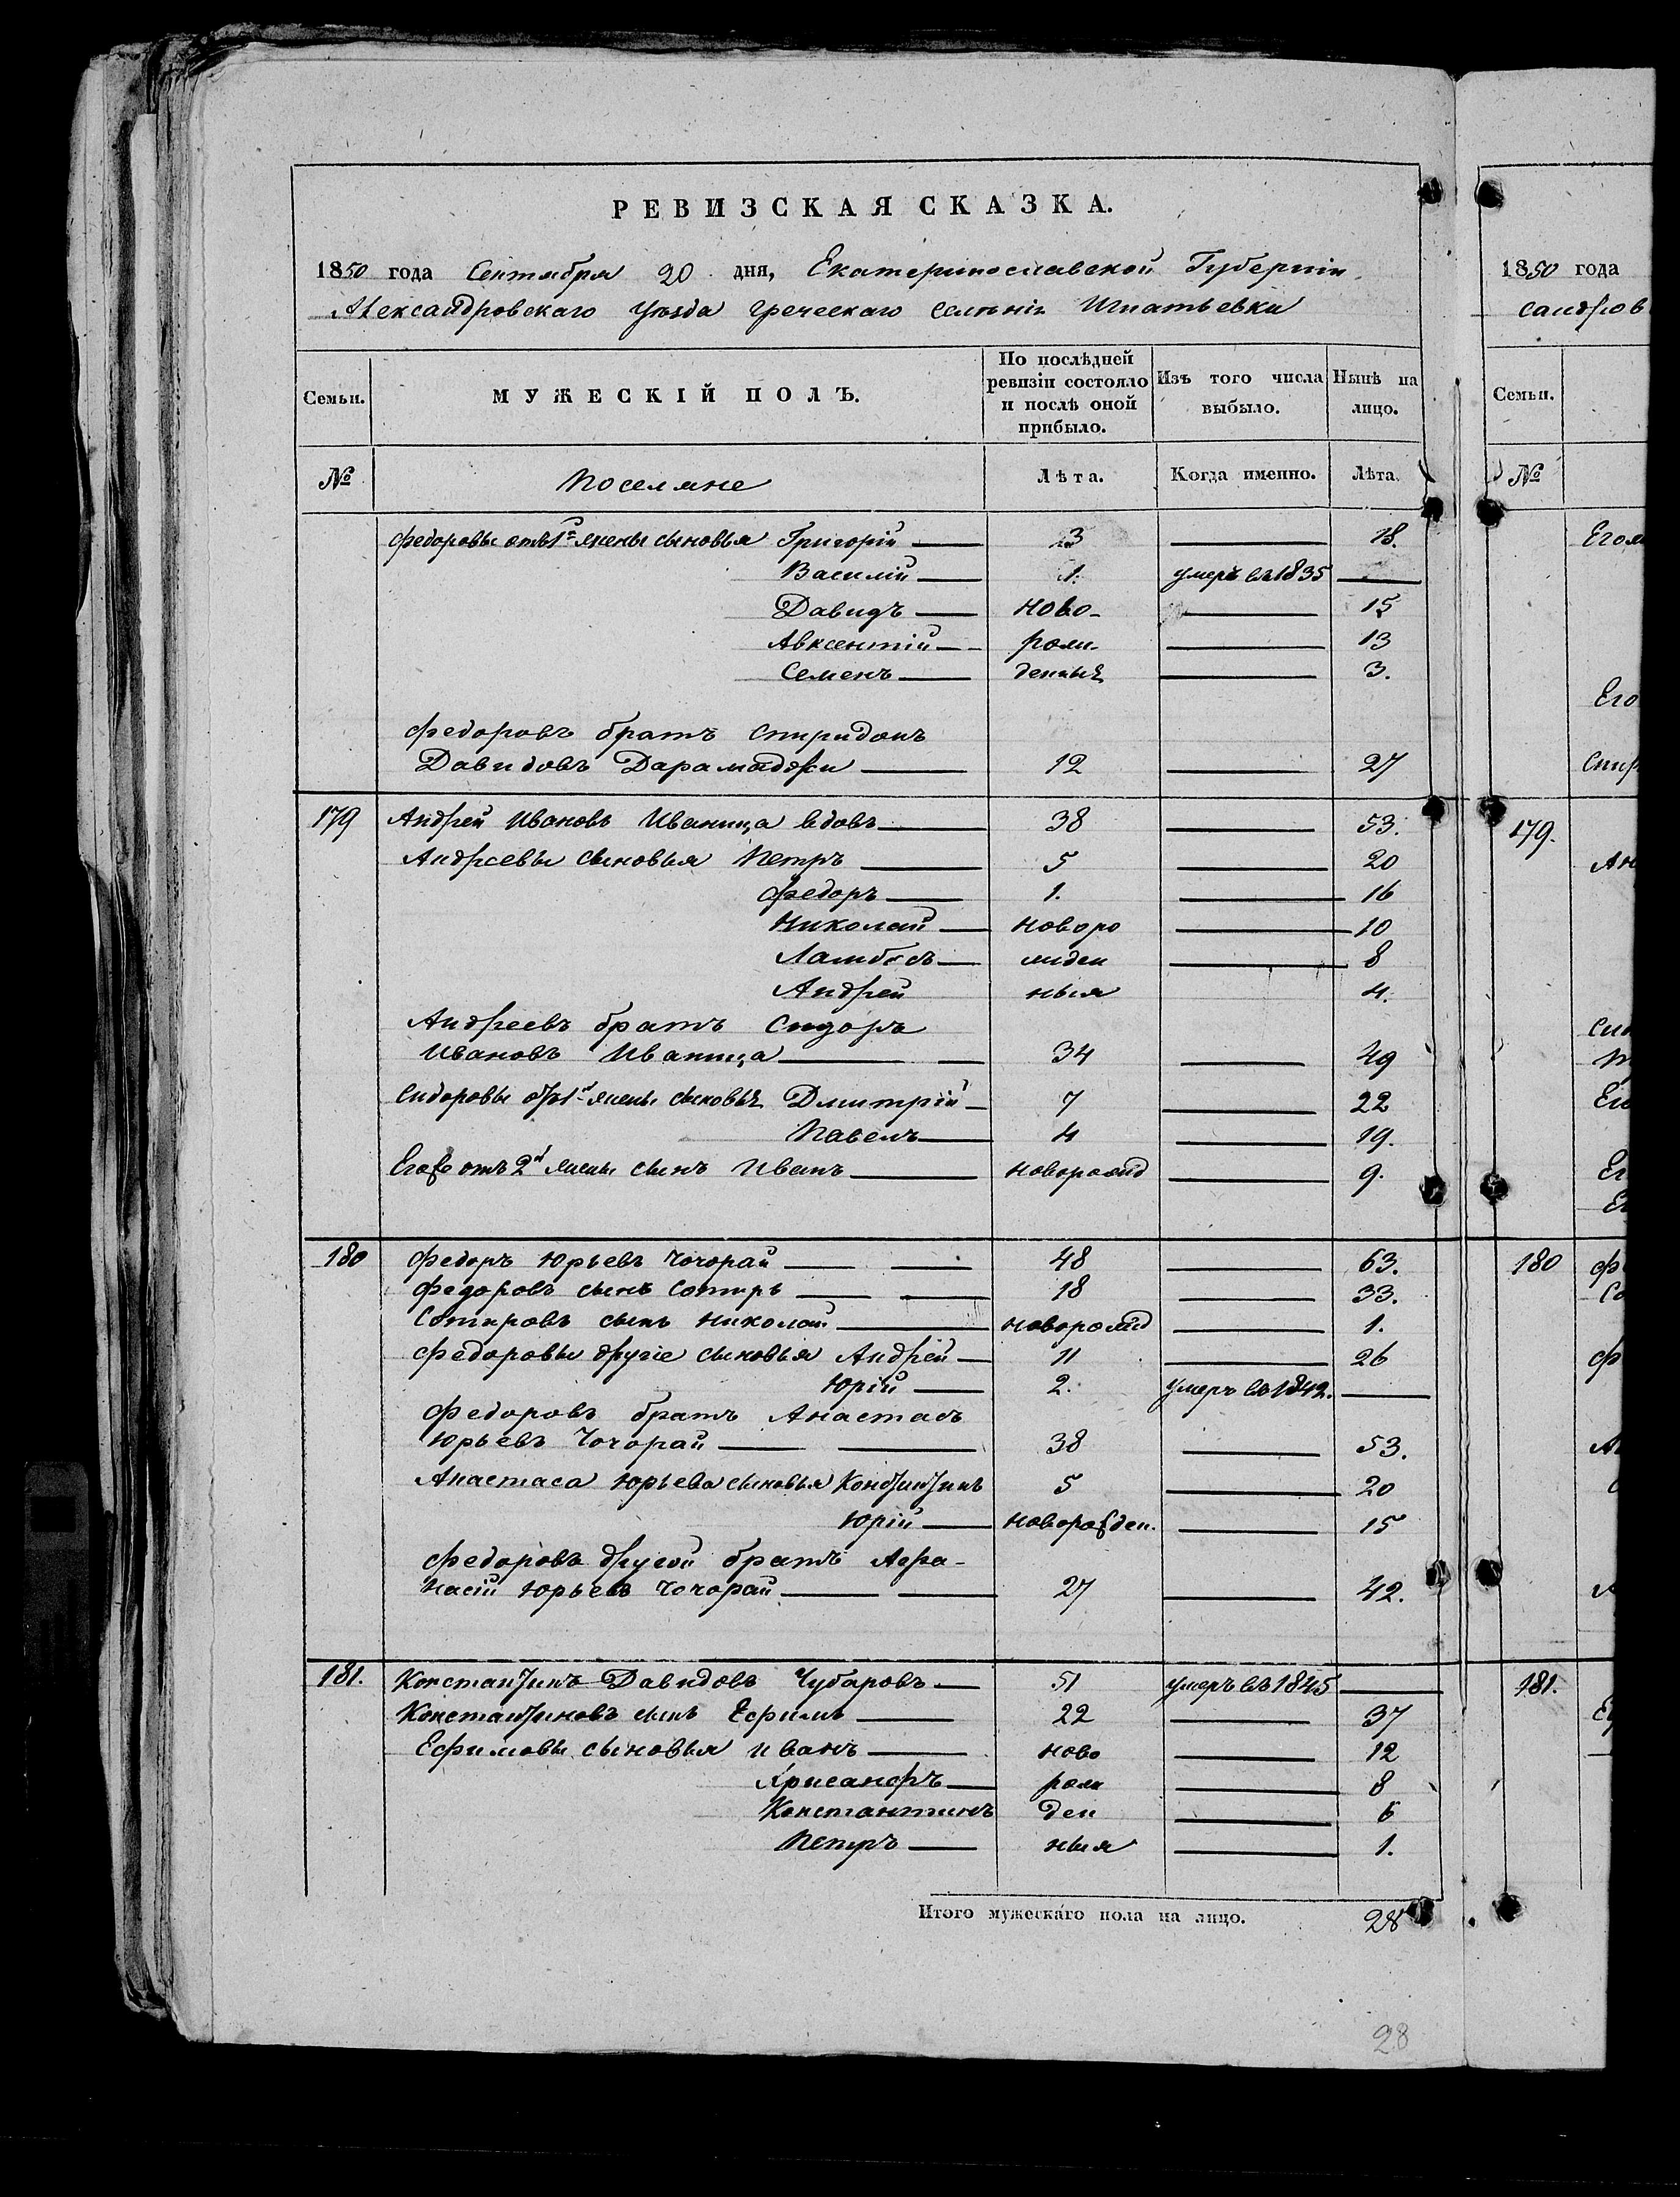 РЕВИЗСКАЯ СКАЗКА.
1850 года Сентября 20 дня, Екатеринославской Губерніи
Александровскаго Уѣзда греческаго селѣнія Игнатьевки
Семьи. МУЖЕСКІЙ ПОЛЪ. По послѣдней ревизіи состояло и послѣ оной прибыло. Изъ того числа выбыло. Нынѣ на лицо.
№ Поселяне Лѣта. Когда именно. Лѣта.
Федоровы отъ 1й жены сыновья Григорій 3 18.
Василій 1. умеръ въ 1835
Давидъ ново- 15
Авксентій рож- 13
Семенъ денныя 3.
Федоровъ братъ Спиридонъ
Давидовъ 12 27
179 Андрей Ивановъ Иваница вдовъ 38 53.
Андреевы сыновья Петръ 5 20
Федоръ 1. 16
Николай новоро 10
Ламбосъ жден 8
Андрей ныя 4.
Андреевъ братъ Сидоръ
Ивановъ Иваница 34 49
Сидоровы отъ 1й жены сыновья Дмитрій 7 22
Павелъ 4 19.
Егоже отъ 2й жены сынъ Иванъ новорожд 9.
180 Федоръ Юрьевъ Чочорай 48 63.
Федоровъ сынъ Сотиръ 18 33.
Сотировъ сынъ Николай новорожд 1.
Федоровы другіе сыновья Андрей 11 26
Юрій 2. умеръ въ 1842.
Федоровъ братъ Анастасъ
Юрьевъ Чочорай 38 53.
Анастаса Юрьева сыновья Константинъ 5 20
Юрій новорожден. 15
Федоровъ другой братъ Афа-
насій Юрьевъ Чочорай 27 42.
181. Константинъ Давидовъ Чубаровъ 51 умеръ въ 1845
Константиновъ сынъ Ефимъ 22 37
Ефимовы сыновья Иванъ ново 12
Хрисанфъ рож 8
Константинъ ден 6
Петръ ныя 1.
Итого мужескаго пола на лицо. 28
28
1850 года
сандров
Семьи.
№
Его
179.
180
181.